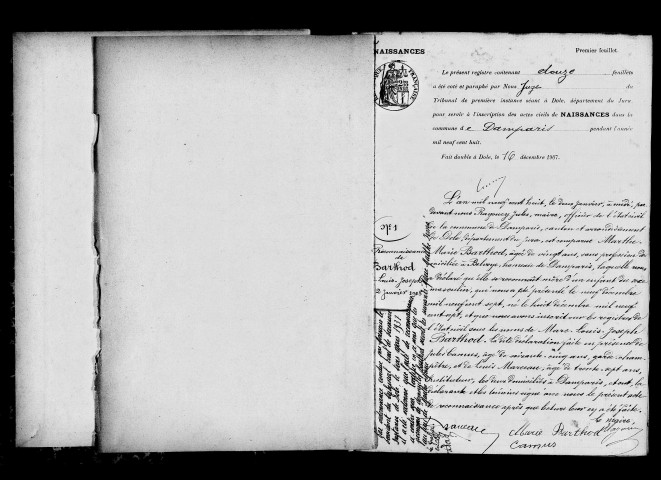 NAISSANCES
Premier feuillet.
Le présent registre contenant douze feuillets
a été coté et paraphé par Nous Juge du
Tribunal de première instance séant à Dole, département du Jura,
pour servir à l'inscription des actes civils de NAISSANCES dans la
commune de Damparis pendant l'année
mil neuf cent huit.
Fait double à Dole, le 16 décembre 1907.
N° 1
Reconnaissance
de
Barthod
Louis-Joseph
2 janvier 1908
L'an mil neuf cent huit, le deux janvier, à midi, par
devant nous Ragoney Jules, maire, officier de l'état civil
de la commune de Damparis, canton et arrondissement
de Dole, département du Jura, est comparue Marthe
Marie Barthod, âgée de vingt ans, sans profession, do
miciliée à Belvoye, hameau de Damparis, laquelle nous
a déclaré qu'elle se reconnaît mère d'un enfant du sexe
masculin, qui nous a été présenté le neuf décembre
mil neuf cent sept, né le huit décembre mil neuf
cent sept, et que nous avons inscrit sur les registres de
l'état civil sous les noms de Marc-Louis-Joseph
Barthod. La dite déclaration faite en présence de
Jules Camus, âgé de soixante-cinq ans, garde cham
pêtre, et de Louis Marceau, âgé de trente-sept ans,
instituteur, les deux domiciliés à Damparis, et ont, la
déclarante et les témoins signé avec nous le présent acte
de reconnaissance après que lecture leur en a été faite.
Le Maire,
Marceau
Marie Barthod
Camus